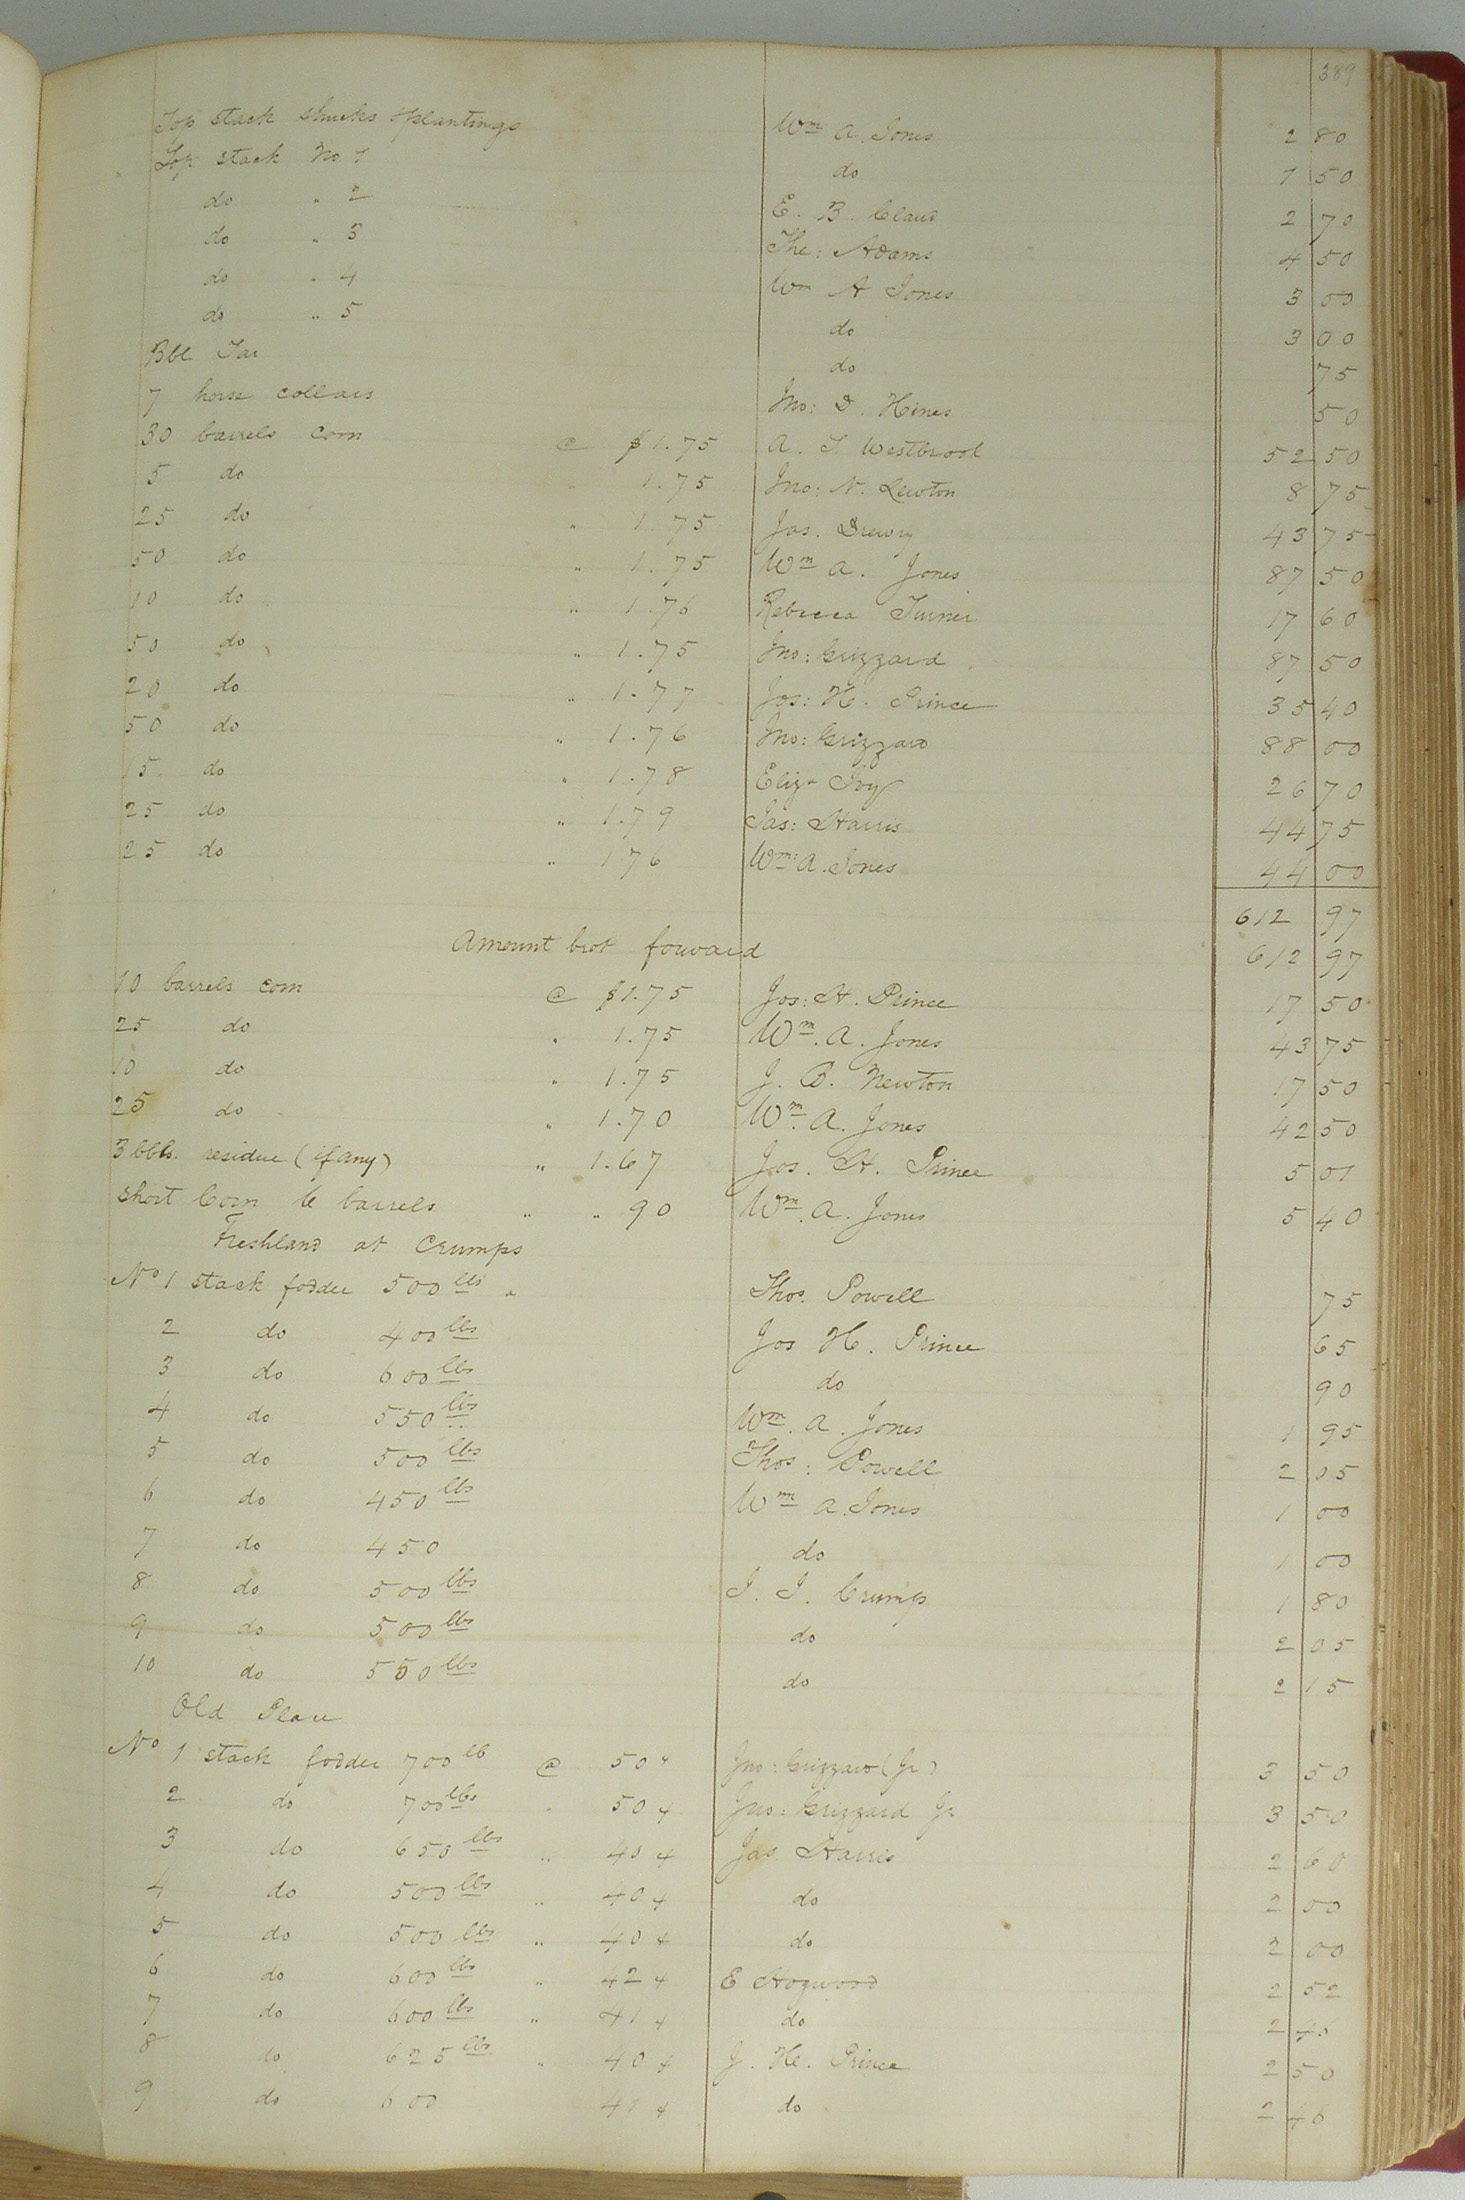 389
Top stack shucks & plantings Wm A. Jones 2 80
Top stack No 1 do 1 50
do " 2 E. B. Claud 2 70
do " 3 The: Adams 4 50
do " 4 Wm A Jones 3 00
do " 5 do 3 00
Bbl Tar do 75
7 horse collars Jno: D. Hines 50
30 barrels corn @ $1.75 A. T. Westbrook 52 50
5 do " 1.75 Jno: N. Newton 8 75
25 do " 1.75 Jas. Drewry 43 75
50 do " 1.75 Wm A. Jones 87 50
10 do " 1.76 Rebecca Turner 17 60
50 do " 1.75 Jno: Grizzard 87 50
20 do " 1.77 Jos: H. Prince 35 40
50 do " 1.76 Jno: Grizzard 88 00
15 do " 1.78 Eliza Ivy 26 70
25 do " 1.79 Jas: Harris 44 75
25 do " 1 76 Wm: A. Jones 44 00
612 97
Amount brot forward 612 97
10 barrels corn @ $1.75 Jos: H. Prince 17 50
25 do " 1.75 Wm. A. Jones 43 75
10 do " 1.75 J. B. Newton 17 50
25 do " 1.70 Wm. A. Jones 42 50
3 bbls. residue (if any) " 1.67 Jos. H. Prince 5 01
Short Corn 6 barrels " " 90 Wm. A. Jones 5 40
Freshland at Crumps
No 1 stack fodder 500 lbs " Thos. Powell 75
2 do 400 lbs Jos H. Prince 65
3 do 600 lbs do 90
4 do 550 lbs Wm. A. Jones 1 95
5 do 500 lbs Thos: Powell 2 05
6 do 450 lbs Wm A. Jones 1 00
7 do 450 do 1 00
8 do 500 lbs J. J. Crump 1 80
9 do 500 lbs do 2 05
10 do 550 lbs do 2 15
Old Place
No 1 stack fodder 700 lb @ 50 ¢ Jno: Grizzard (Jr) 3 50
2 do 700 lbs " 50 ¢ Jno: Grizzard Jr 3 50
3 do 650 lbs " 40 ¢ Jas. Harris 2 60
4 do 500 lbs " 40 ¢ do 2 00
5 do 500 lbs " 40 ¢ do 2 00
6 do 600 lbs " 42 ¢ E Hogwood 2 52
7 do 600 lbs " 41 ¢ do 2 46
8 do 625 lbs " 40 ¢ J. H. Prince 2 50
9 do 600 41 ¢ do 2 46